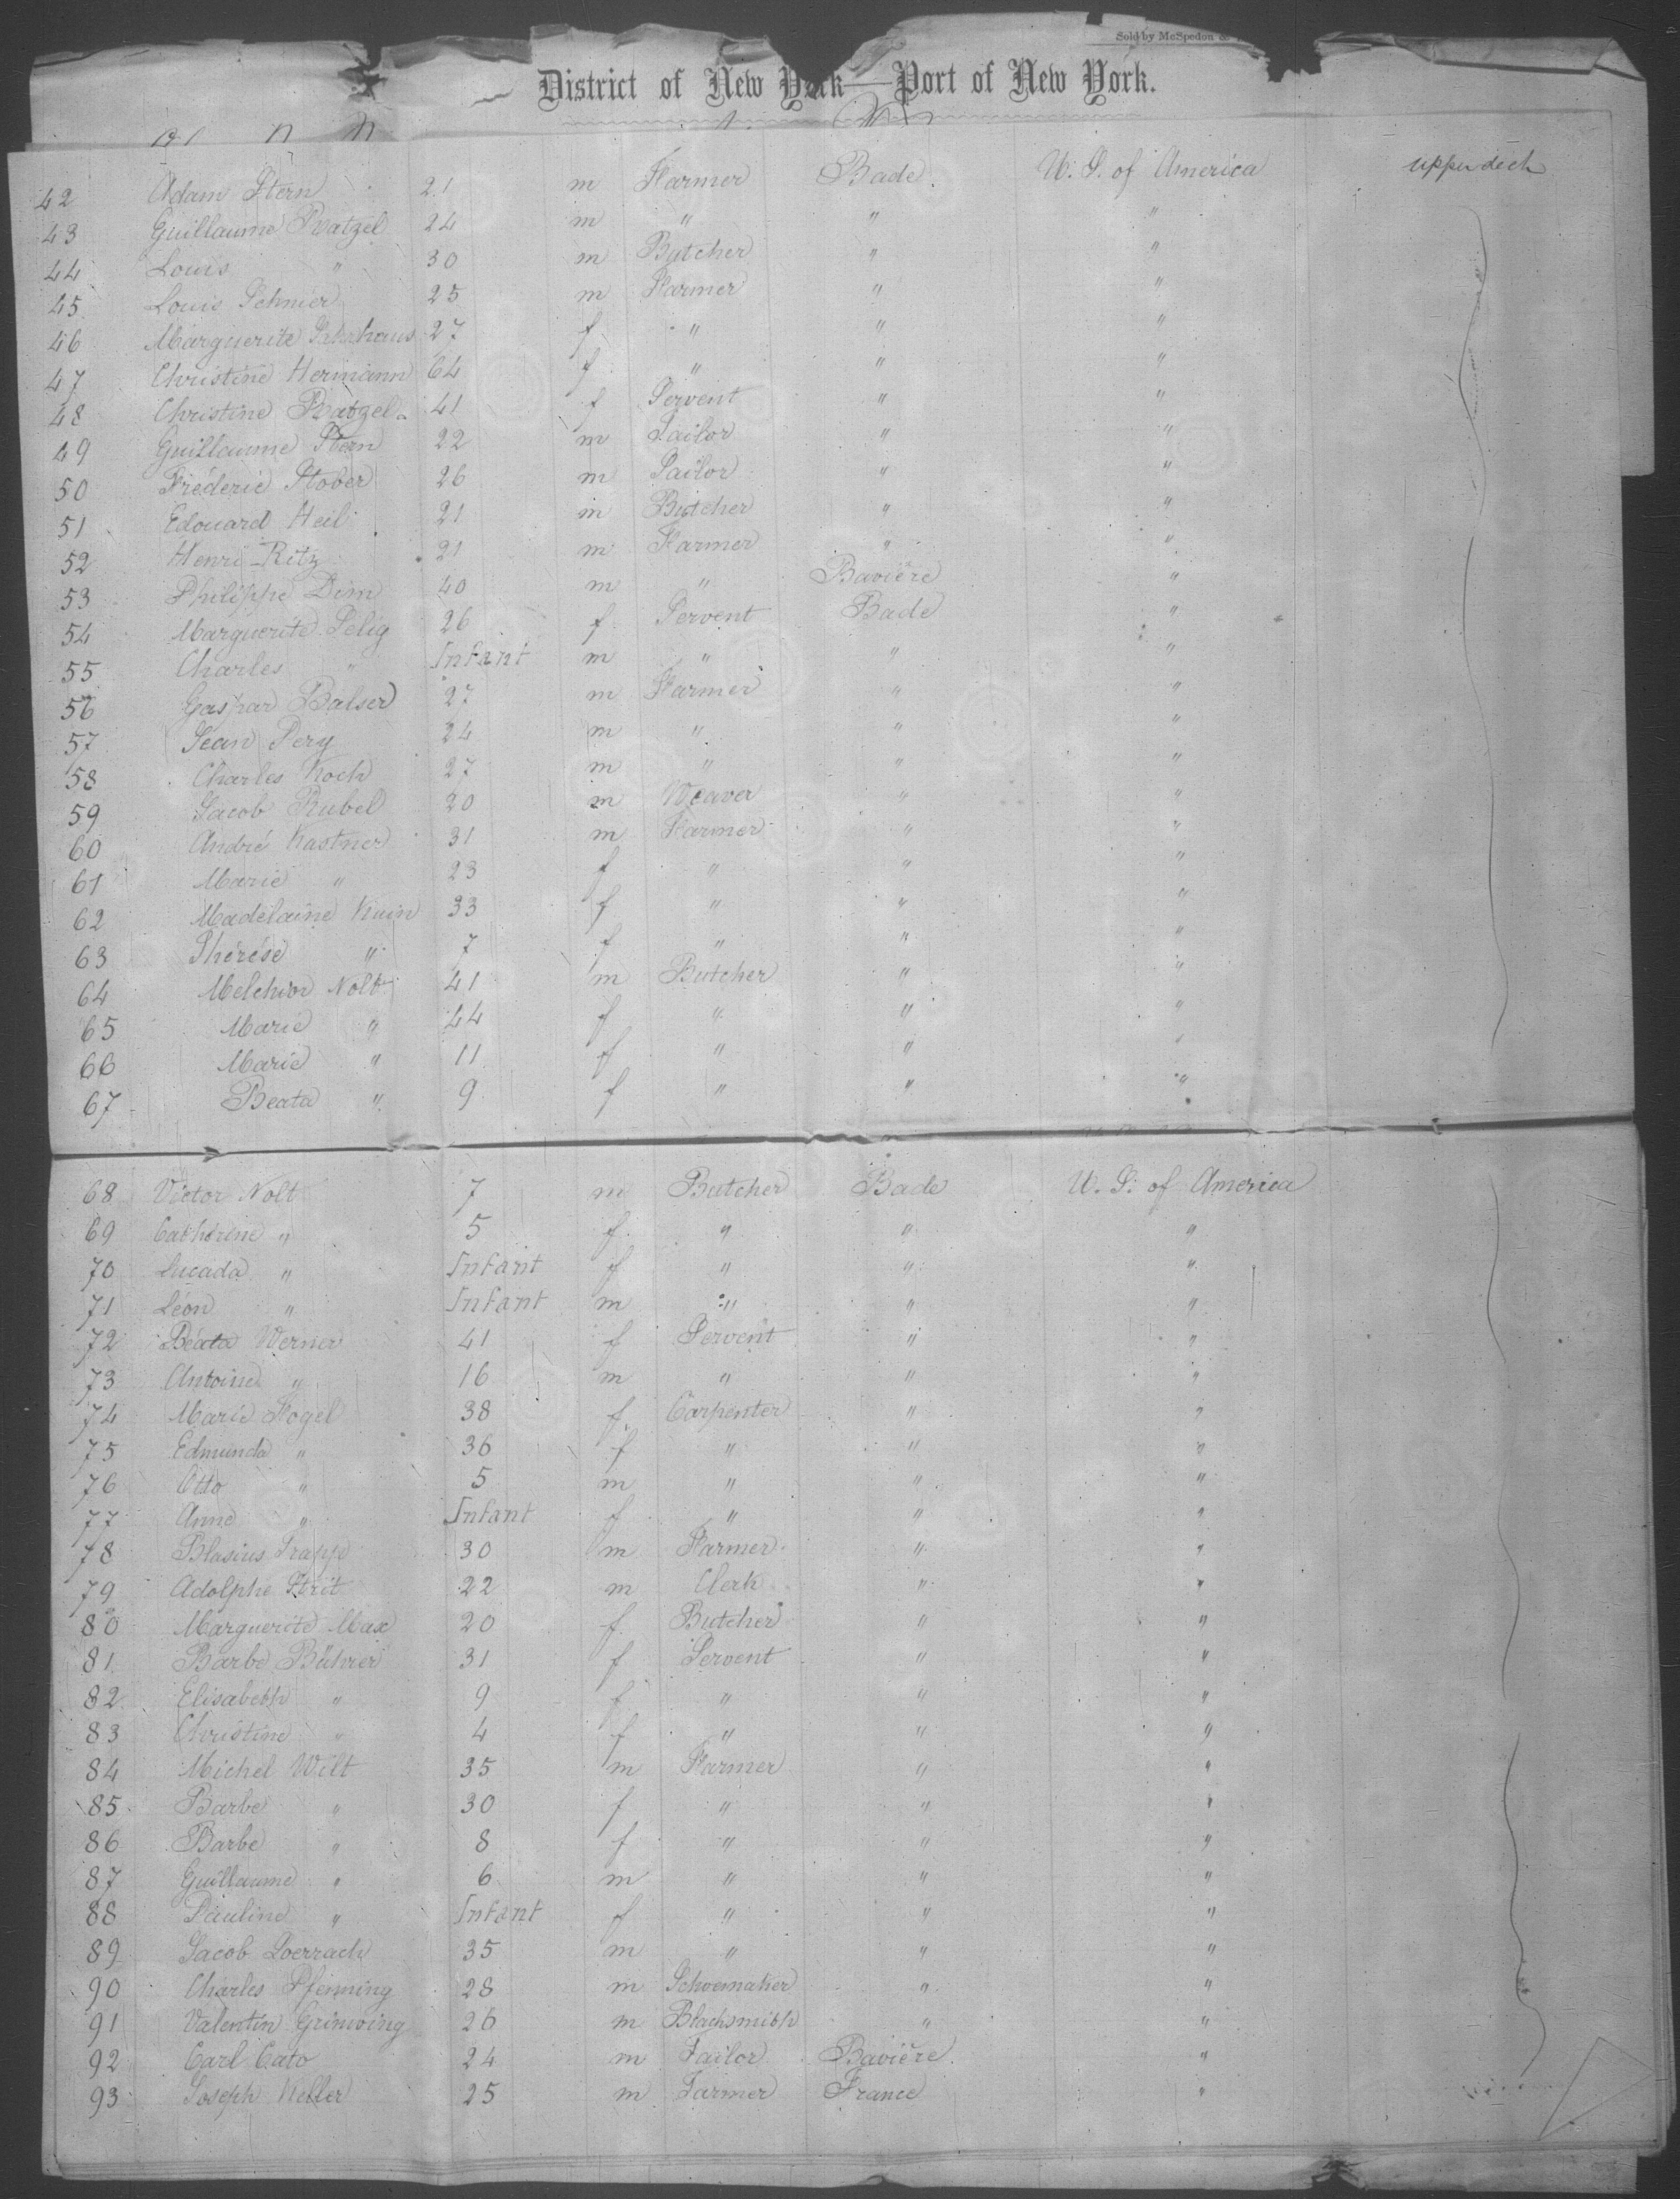 Sold by McSpedon &
District of New York—Port of New York.
42 Adam Stern 21 m Farmer Bade. U. S. of America upper deck
43 Guillaume Ratzel 24 m " " "
44 Louis " 30 m Butcher " "
45 Louis Schnier 25 m Farmer " "
46 Marguerite 27 f " " "
47 Christine Hermann 64 f " " "
48 Christine Ratzel 41 f Servent " "
49 Guillaume Stern 22 m Sailor " "
50 Fréderic Stober 26 m Sailor " "
51 Edouard Heil 21 m Butcher " "
52 Henri Ritz 21 m Farmer " "
53 Philippe Dim 40 m " Bavière "
54 Marguerite Selig 26 f Servent Bade "
55 Charles " Infant m " " "
56 Gaspar Balser 27 m Farmer " "
57 Jean Pery 24 m " " "
58 Charles Koch 27 m " " "
59 Jacob Rubel 20 m Weaver " "
60 André Kastner 31 m Farmer " "
61 Marie " 23 f " " "
62 Madelaine Kuin 33 f " " "
63 Thérése " 7 f " " "
64 Melchior Nolt 41 m Butcher " "
65 Marie " 44 f " " "
66 Marie " 11 f " " "
67 Beata " 9 f " " "
68 Victor Nolt 7 m Butcher Bade U. S. of America
69 Catherine " 5 f " " "
70 Lucada " Infant f " " "
71 Léon " Infant m " " "
72 Béata Werner 41 f Servent " "
73 Antoine " 16 m " " "
74 Marie Fogel 38 f. Carpenter " "
75 Edmunda " 36 f " " "
76 Otto " 5 m " " "
77 Anne " Infant f " " "
78 Blasius Trapp 30 m Farmer " "
79 Adolphe Strit 22 m Clerk " "
80 Marguerite Max 20 f. Butcher " "
81 Barbe Bührer 31 f Servent " "
82 Elisabeth " 9 f " " "
83 Christine " 4 f " " "
84 Michel Wilt 35 m Farmer " "
85 Barbe " 30 f " " "
86 Barbe " 8 f " " "
87 Guillaume " 6 m " " "
88 Pauline " Infant f " " "
89 Jacob Loerrach 35 m " " "
90 Charles Pfenning 28 m Schoemaker " "
91 Valentin Grimving 26 m Blacksmith " "
92 Carl Cato 24 m Tailor Bavière. "
93 Joseph Keller 25 m Farmer France "